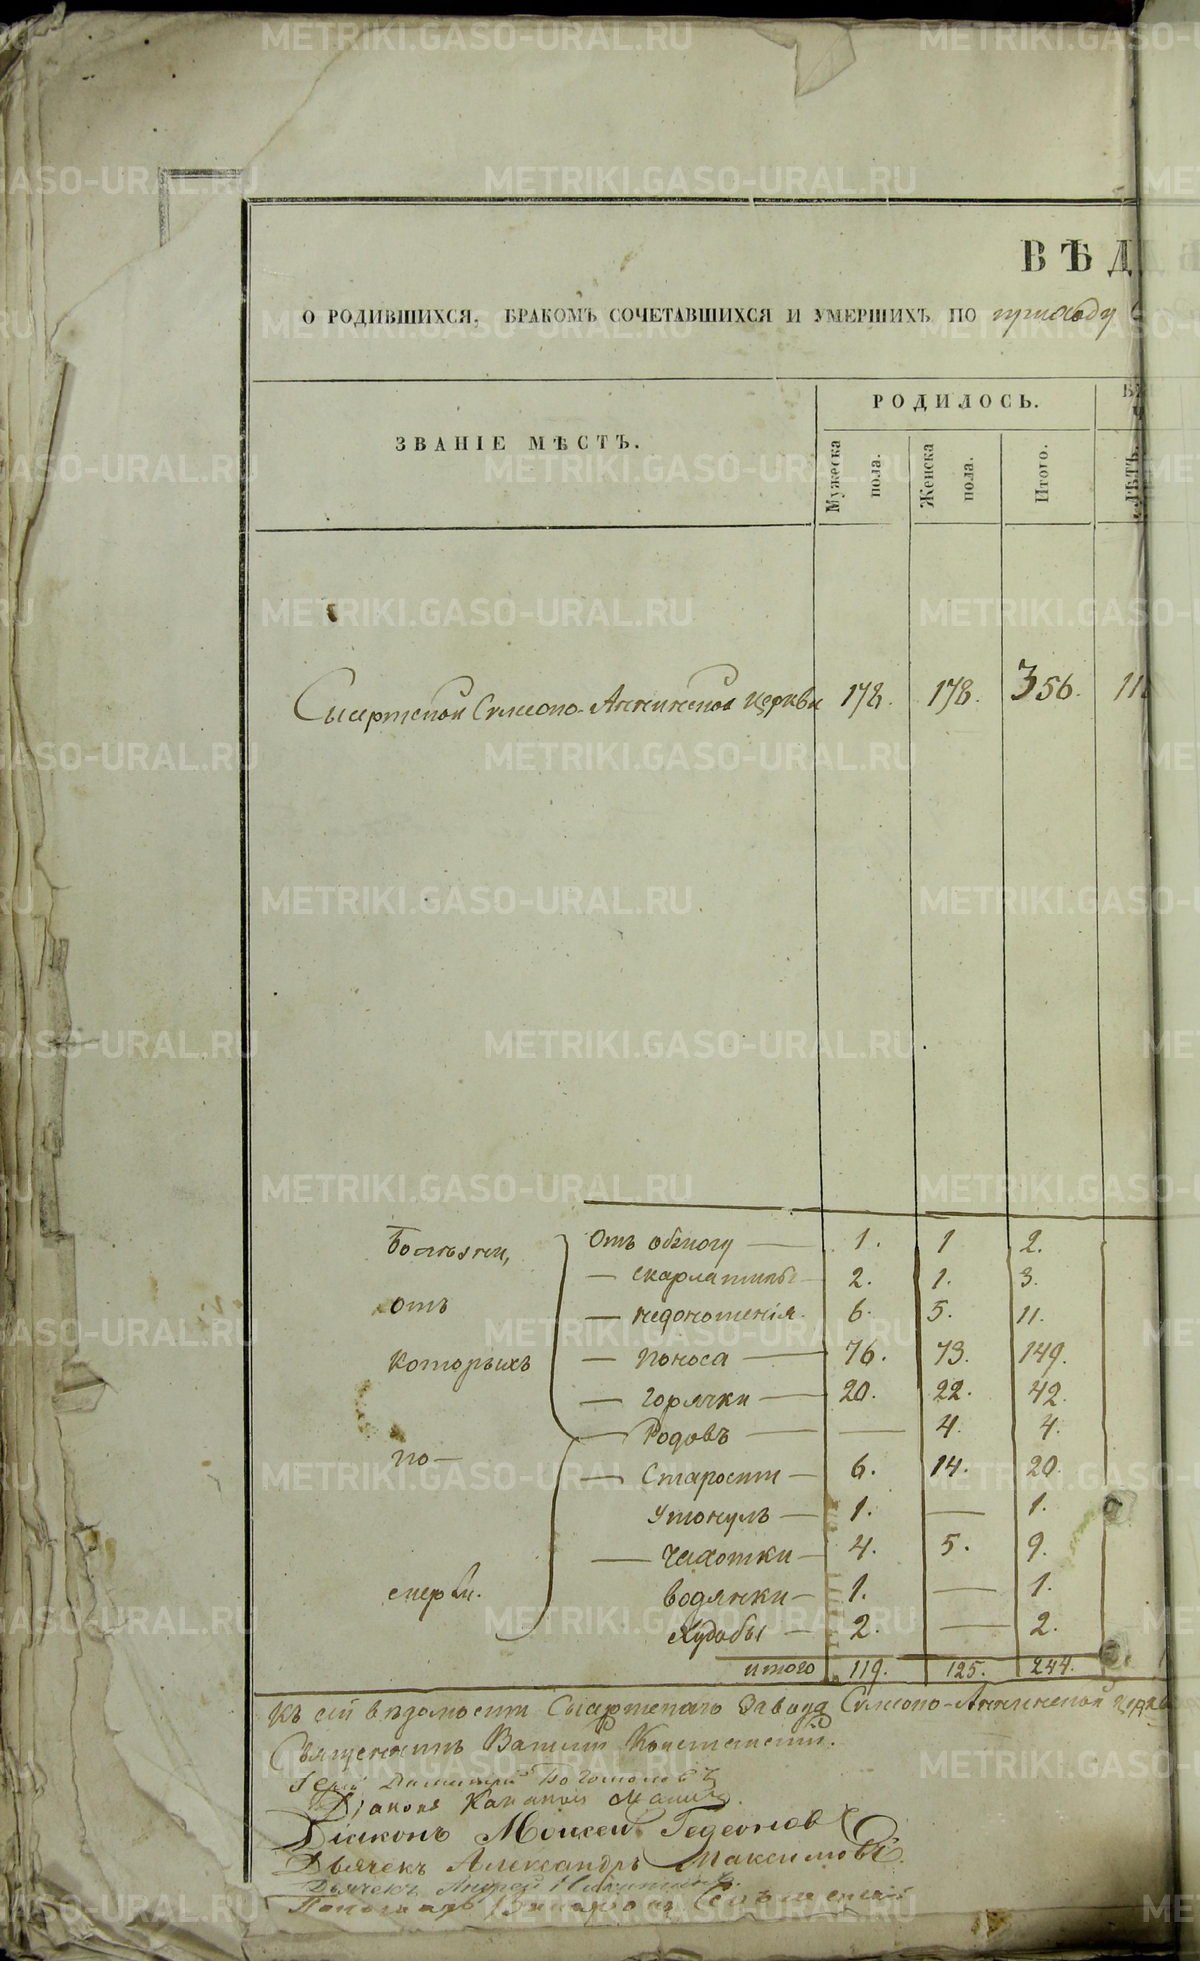 ВѢД
О РОДИВШИХСЯ, БРАКОМЪ СОЧЕТАВШИХСЯ И УМЕРШИХЪ ПО приходу
ЗВАНІЕ МѢСТЪ.
РОДИЛОСЬ.
Мужеска пола.
Женска пола.
Итого.
ЛѢТЪ.
Сысертской Симеоно-Аннинской церкви 178. 178. 356. 11
Болѣзни, Отъ 1. 1 2.
— скарлатины — 2. 1. 3.
отъ — недоношенія. 6. 5. 11.
которыхъ — поноса — 76. 73. 149.
— горячки — 20. 22. 42.
— Родовъ — — 4. 4.
по—
— Старости — 6. 14. 20.
Утонулъ — 1. — 1.
— Чахотки — 4. 5. 9.
смерти. водянки — 1. — 1.
Худобы — 2. — 2.
итого 119. 125. 244.
Къ сей вѣдомости Сысертскаго Завода Симеоно-Аннинской церкв
Священникъ Василій
Іерей Димитрій
Діаконъ
Діаконъ Моисей Гедеоновъ
Дьячекъ Александръ Максимовъ.
Дьячекъ Андрей
Пономарь
METRIKI.GASO-URAL.RU